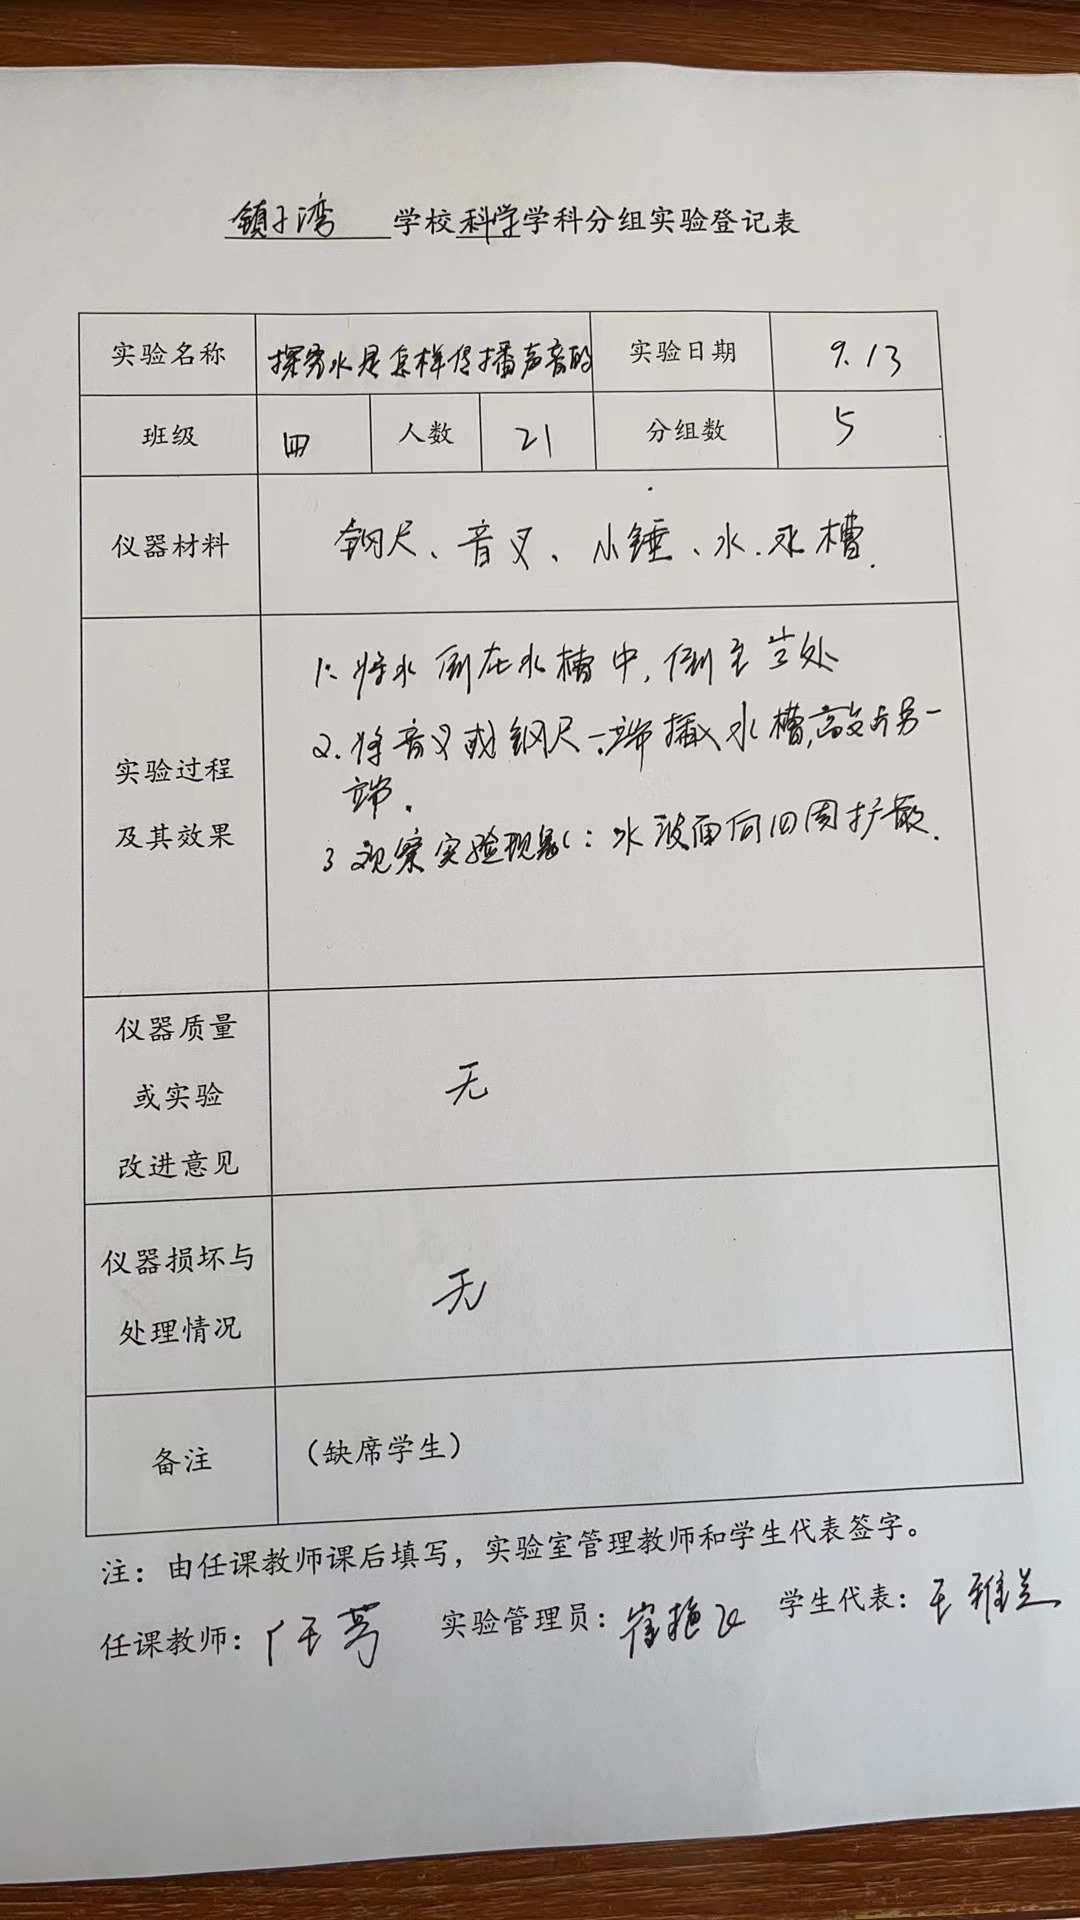 镇子湾 学校科学学科分组实验登记表
实验名称 探究水是怎样传播声音的 实验日期 9.13
班级 四 人数 21 分组数 5
仪器材料 钢尺、音叉、小锤、水.水槽.
实验过程
及其效果
1.将水倒在水槽中,倒至 处
2.将音叉或钢尺一端插入水槽,敲击另一
端.
3 观察实验现象:水波面向四周扩散.
仪器质量
或实验
改进意见
无
仪器损坏与
处理情况
无
备注 (缺席学生)
注:由任课教师课后填写,实验室管理教师和学生代表签字。
任课教师: 实验管理员: 学生代表:王雅兰